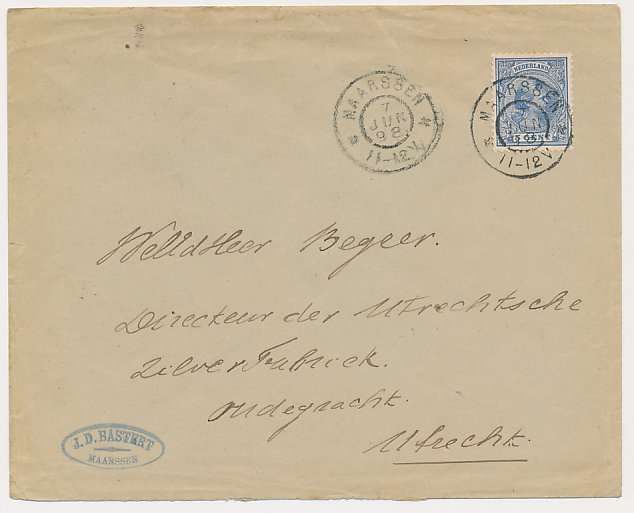 MAARSSEN
7
JUN
92
11-12V
NEDERLAND
MAARSSEN
7
JUN
5 CENT
11-12V
WelEdHeer Begeer.
Directeur der Utrechtsche
Zilver Fabriek.
Oudegracht.
Utrecht.
J. D. BASTERT
MAARSSEN